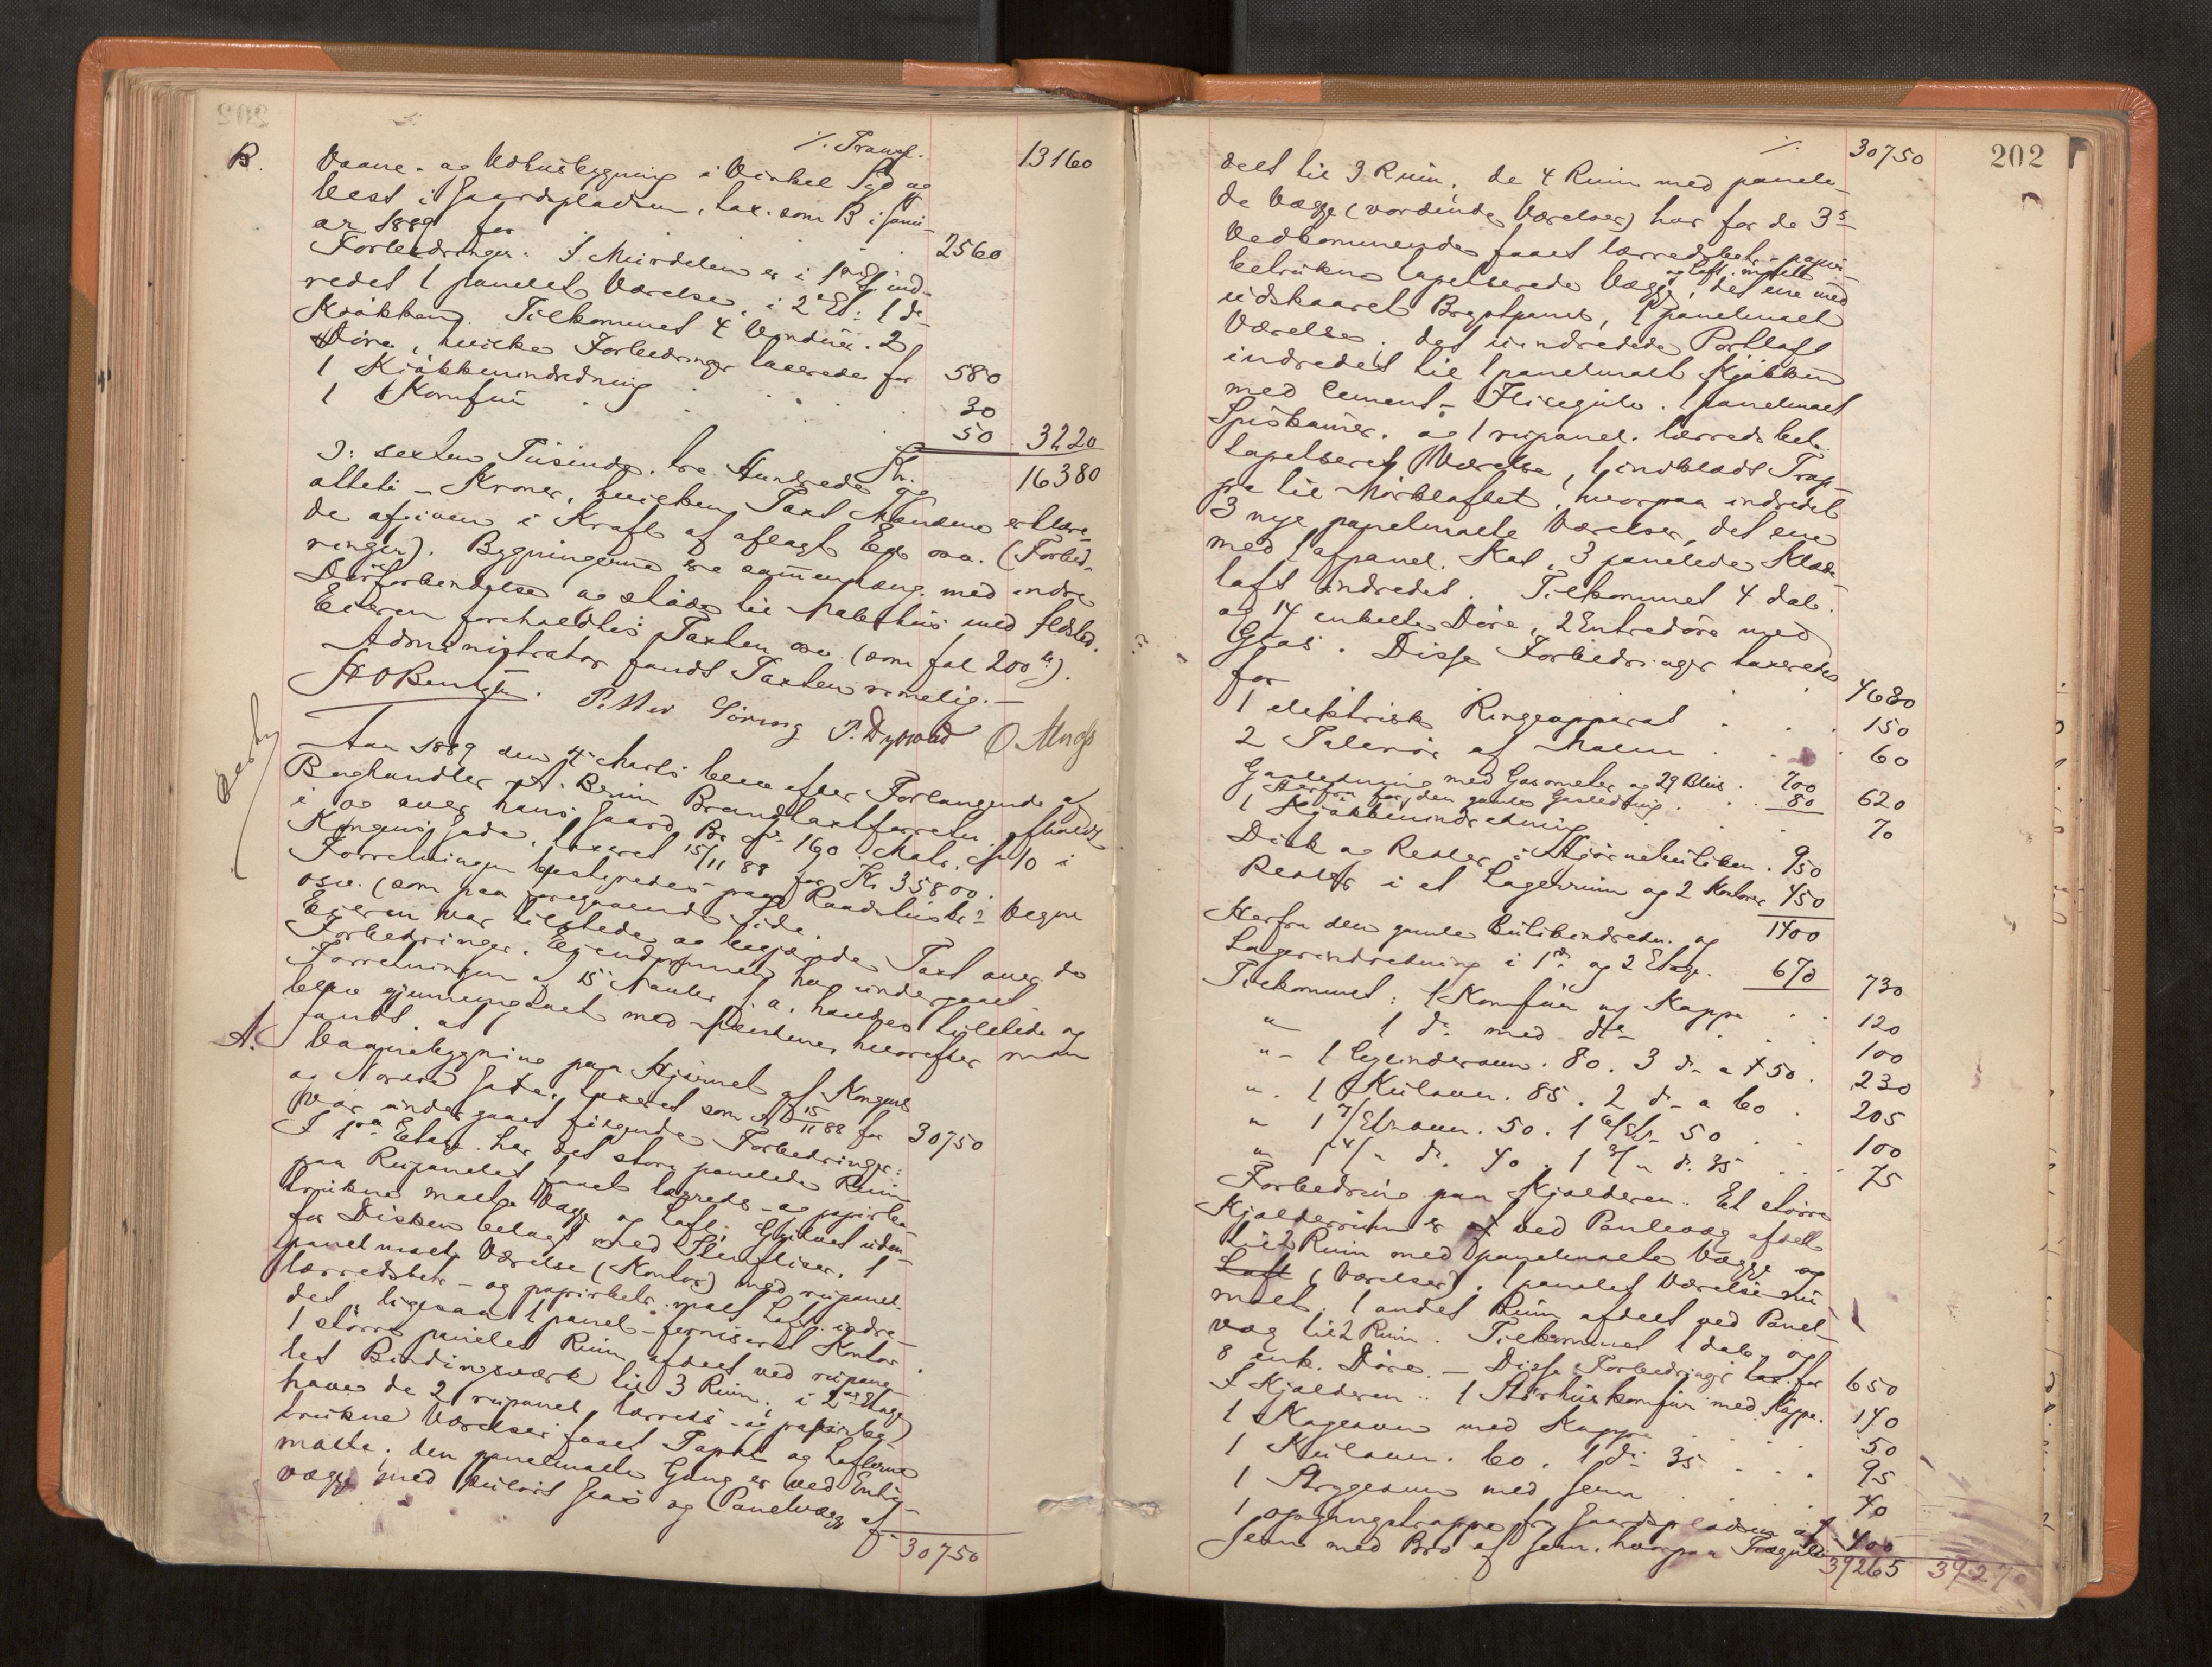 ·/. Transp. 13160
B. Vaane- og Udhusbygning i Vinkel Syd og
Vest i Gaardspladsen, tax. som B i Janu-
ar 1889 for . . . 2560
Forbedringer. I Muirdelen er i 1ste Et. ind-
redet 1 panelet Værelse, i 2d Et: 1 do
Kjøkken. Tilkommet 4 Vinduer. 2
Døre, hvilke Forbedringer taxeredes for 580
1 Kjøkkenindredning . . . 30
1 Komfur . . . 50 . 3220
Kr. 16380
ɔ: sexten Tusinde, tre Hundrede og
otteti – Kroner, hvilken Taxt Mændene erklære-
de afgiven i Kraft af aflagt Ed osv. (Forbed-
ringer). Bygningerne ere sammenhæng. med indre
Dørforbindelse og stødes til Nabohus med Ildsted.
Eieren foreholdtes Taxten osv. (som fol 200 b).
Administrator fandt Taxten rimelig.–
H O Bentzen. P. Müller Lövvig P. Dybvad O Moss
Aar 1889 den 4de Marts blev efter Forlangende af
Boghandler A. Brun Brandtaxtforretn. afholdt
i og over hans Gaard Br. No 160. Matr. No 10 i
Kongens Gade, taxeret 15/11 88 for Kr 35800.
Forretningen bestyredes paa Raadstuens Vegne
osv. (som paa foregaaende Side.
Eieren var tilstede og begjærede Taxt over de
Forbedringer, Eiendommen har undergaaet
Forretningen af 15 Novbr f. a. havdes tilstede og
blev gjennemgaaet med Mændene, hvorefter man
fandt, at
A. Vaanebygning paa Hjørnet af Kongens
og Nordre Gade, taxeret som A 15/11 88 for 30750
var undergaaet følgende Forbedringer:
I 1ste Etage har det store panelede Rum
paa Rupanelet faaet lærreds- og papirbe-
trukne malte Vægge og Loft; Gulvet uden-
for Disken belagt med Stenfliser. 1
panelmalt Værelse (Kontor) med rupanel.
lærredsbetr.- og papirbetr. malt Loft indre-
det, ligesaa 1 panel-ferniseret Kontor.
1 større panelet Rum afdeelt ved rupane-
let Bindingsværk til 3 Rum; i 2den Etage
have de 2 rupanel. lærreds- og papirbe-
trukne Værelser faaet Tapet og Lofterne
malte; den panelmalte Gang er ved Entre-
væg med kulørt Glas og Panelvæg af-
30750
·/. 30750 202
delt til 3 Rum, de 4 Rum med panele-
de Vægge (vordende Værelser) har for de 3s
Vedkommende faaet lærredsbetr.- papir-
betrukne tapetserede Vægge og Loft malt, det ene med
udskaaret Brystpanel, 1 panelmalt
Værelse; det uindredede Portloft
indredet til 1 panelmalt Kjøkken
med Cement-Flisegulv. 1 panelmalt
Spiskamer. og 1 rupanel. lærredsbet.
tapetseret Værelse, 1 indklædt Trap-
pe til Mørkloftet, hvorpaa indredet
3 nye panelmalte Værelser, det ene
med afpanel. Kot, 3 panelede Klæde-
loft indredet. Tilkommet 4 dob.
og 14 enkelte Døre, 2 Entredøre med
Glas. Disse Forbedringer taxeredes
for . . . 4680
1 elektrisk Ringeapparat . . . 150
2 Talerør af Metal . . . 60
Gasledning med Gasometer og 29 Blus . 700
Herfra for den gamle Gasledning . . 80 620
1 Kjøkkenindredning . . . 70
Disk og Reoler i Hjørnebutiken . 950
Reoler i et Lagerrum og 2 Kontorer 450
1400
Herfra den gamle Butikindredn. og
Lagerindredning i 1ste og 2 Etage. 670 730
Tilkommet: 1 Komfur og Kappe . . 120
" 1 do med do . . 100
" - 1 Cylinderovn. 80. 3 do a 50 . 230
" . 1 Kulovn. 85. 2 do a 60 . 205
" 1 7/Etovn. 50. 1 6/Et- 50 . . 100
" 1 4/" do. 40. 1 3/" do. 35 . . . 75
Forbedring paa Kjælderen. Et større
Kjælderrum er ved Panelvæg afdelt
til 2 Rum med panelmalte Vægge og
Loft (Værelser). 1 panelet Værelse nu
malt. 1 andet Rum afdeelt ved Panel-
væg til 2 Rum. Tilkommet 1 dob. og
8 enk. Døre. – Disse Forbedringer tax. for 650
I Kjælderen: 1 Storhuskomfur med Kappe. 140
1 Kageovn med Kappe . . . 50
1 Kulovn. 60. 1 do 35 . . . 95
1 Strygeovn med Jern . . . 40
1 opgangstrappe fra Gaardspladsen af 400
Jern med Bro af Jern, hvorpaa Trægulv
39265 39270